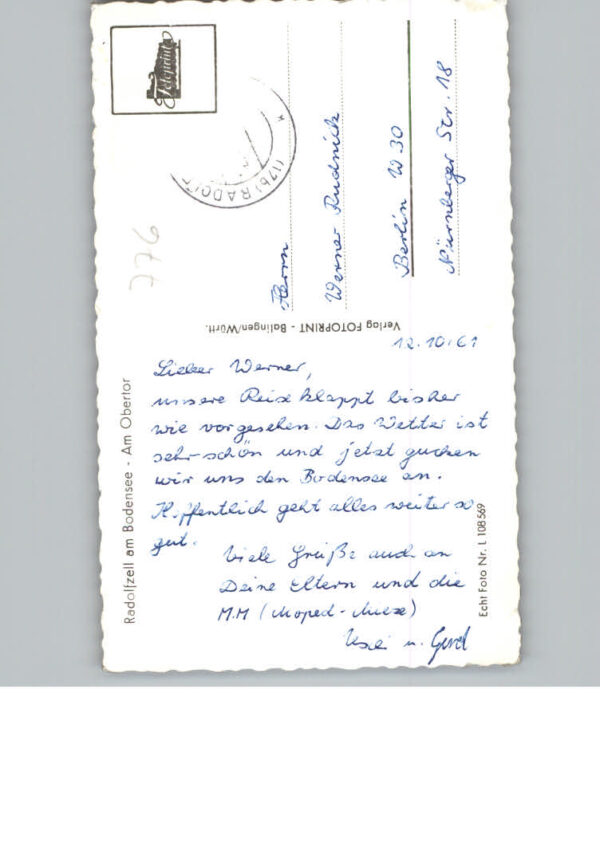 Fotoprint
(17b) RADO
776
Herrn
Werner Rudnick
Berlin W 30
Nürnberger Str. 18
Verlag FOTOPRINT - Balingen/Württ.
Radolfzell am Bodensee - Am Obertor
Echt Foto Nr. L 108569
12.10.61
Lieber Werner,
unsere Reise klappt bisher
wie vorgesehen. Das Wetter ist
sehr schön und jetzt gucken
wir uns den Bodensee an.
Hoffentlich geht alles weiter so
gut.
Viele Grüße auch an
Deine Eltern und die
M.M (Moped-Mieze)
u. Gerd